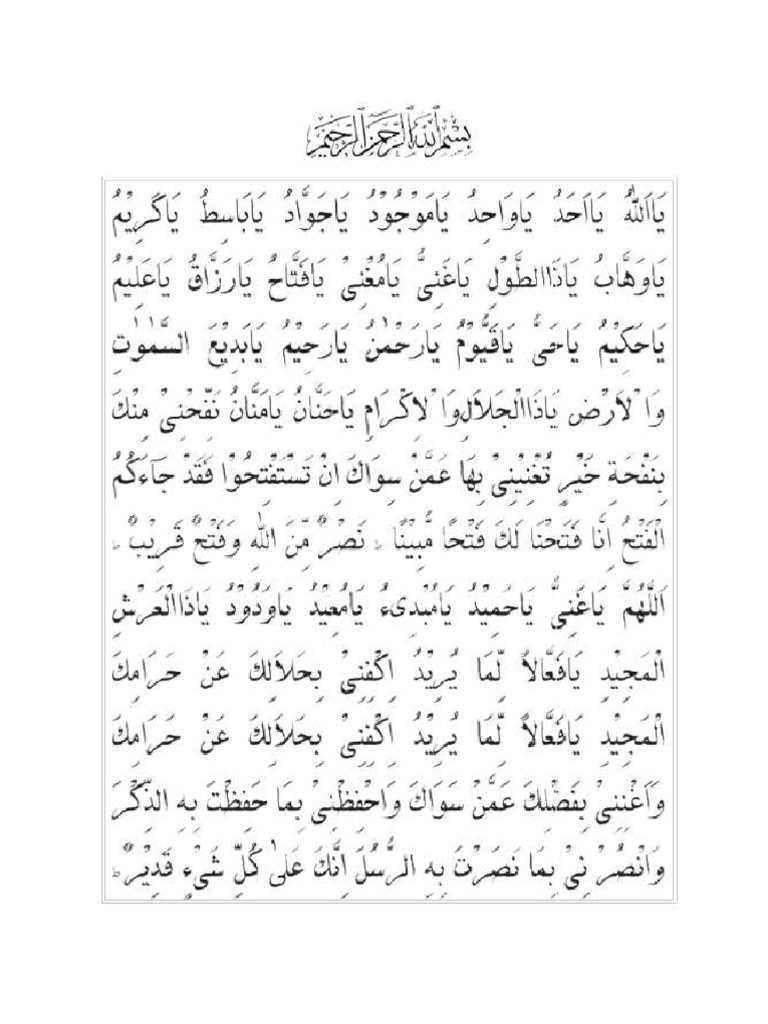 بِسْمِ ٱللَّهِ ٱلرَّحْمَٰنِ ٱلرَّحِيمِ
يَااَللّٰهُ يَااَحَدُ يَاوَاحِدُ يَامَوْجُوْدُ يَاجَوَّادُ يَابَاسِطُ يَاكَرِيْمُ
يَاوَهَّابُ يَاذَاالطَّوْلِ يَاغَنِىُّ يَامُغْنِىْ يَافَتَّاحُ يَارَزَّاقُ يَاعَلِيْمُ
يَاحَكِيْمُ يَاحَىُّ يَاقَيُّوْمُ يَارَحْمٰنُ يَارَحِيْمُ يَابَدِيْعَ السَّمٰوٰتِ
وَالْاَرْضِ يَاذَاالْجَلَالِ وَالْاِكْرَامِ يَاحَنَّانُ يَامَنَّانُ نَفِّحْنِىْ مِنْكَ
بِنَفْحَةِ خَيْرٍ تُغْنِيْنِىْ بِهَا عَمَّنْ سِوَاكَ اِنْ تَسْتَفْتِحُوْا فَقَدْ جَآءَكُمُ
الْفَتْحُ اِنَّا فَتَحْنَا لَكَ فَتْحًا مُّبِيْنًا ۔ نَصْرٌ مِّنَ اللّٰهِ وَفَتْحٌ قَرِيْبٌ ۔
اَللّٰهُمَّ يَاغَنِىُّ يَاحَمِيْدُ يَامُبْدِىءُ يَامُعِيْدُ يَاوَدُوْدُ يَاذَاالْعَرْشِ
الْمَجِيْدِ يَافَعَّالاً لِّمَا يُرِيْدُ اِكْفِنِىْ بِحَلَالِكَ عَنْ حَرَامِكَ
الْمَجِيْدِ يَافَعَّالاً لِّمَا يُرِيْدُ اِكْفِنِىْ بِحَلَالِكَ عَنْ حَرَامِكَ
وَاَغْنِنِىْ بِفَضْلِكَ عَمَّنْ سَوَاكَ وَاحْفِظْنِىْ بِمَا حَفِظْتَ بِهِ الذِّكْرَ
وَانْصُرْنِىْ بِمَا نَصَرْتَ بِهِ الرُّسُلَ اِنَّكَ عَلىٰ كُلِّ شَىْءٍ قَدِيْرٌ ۔